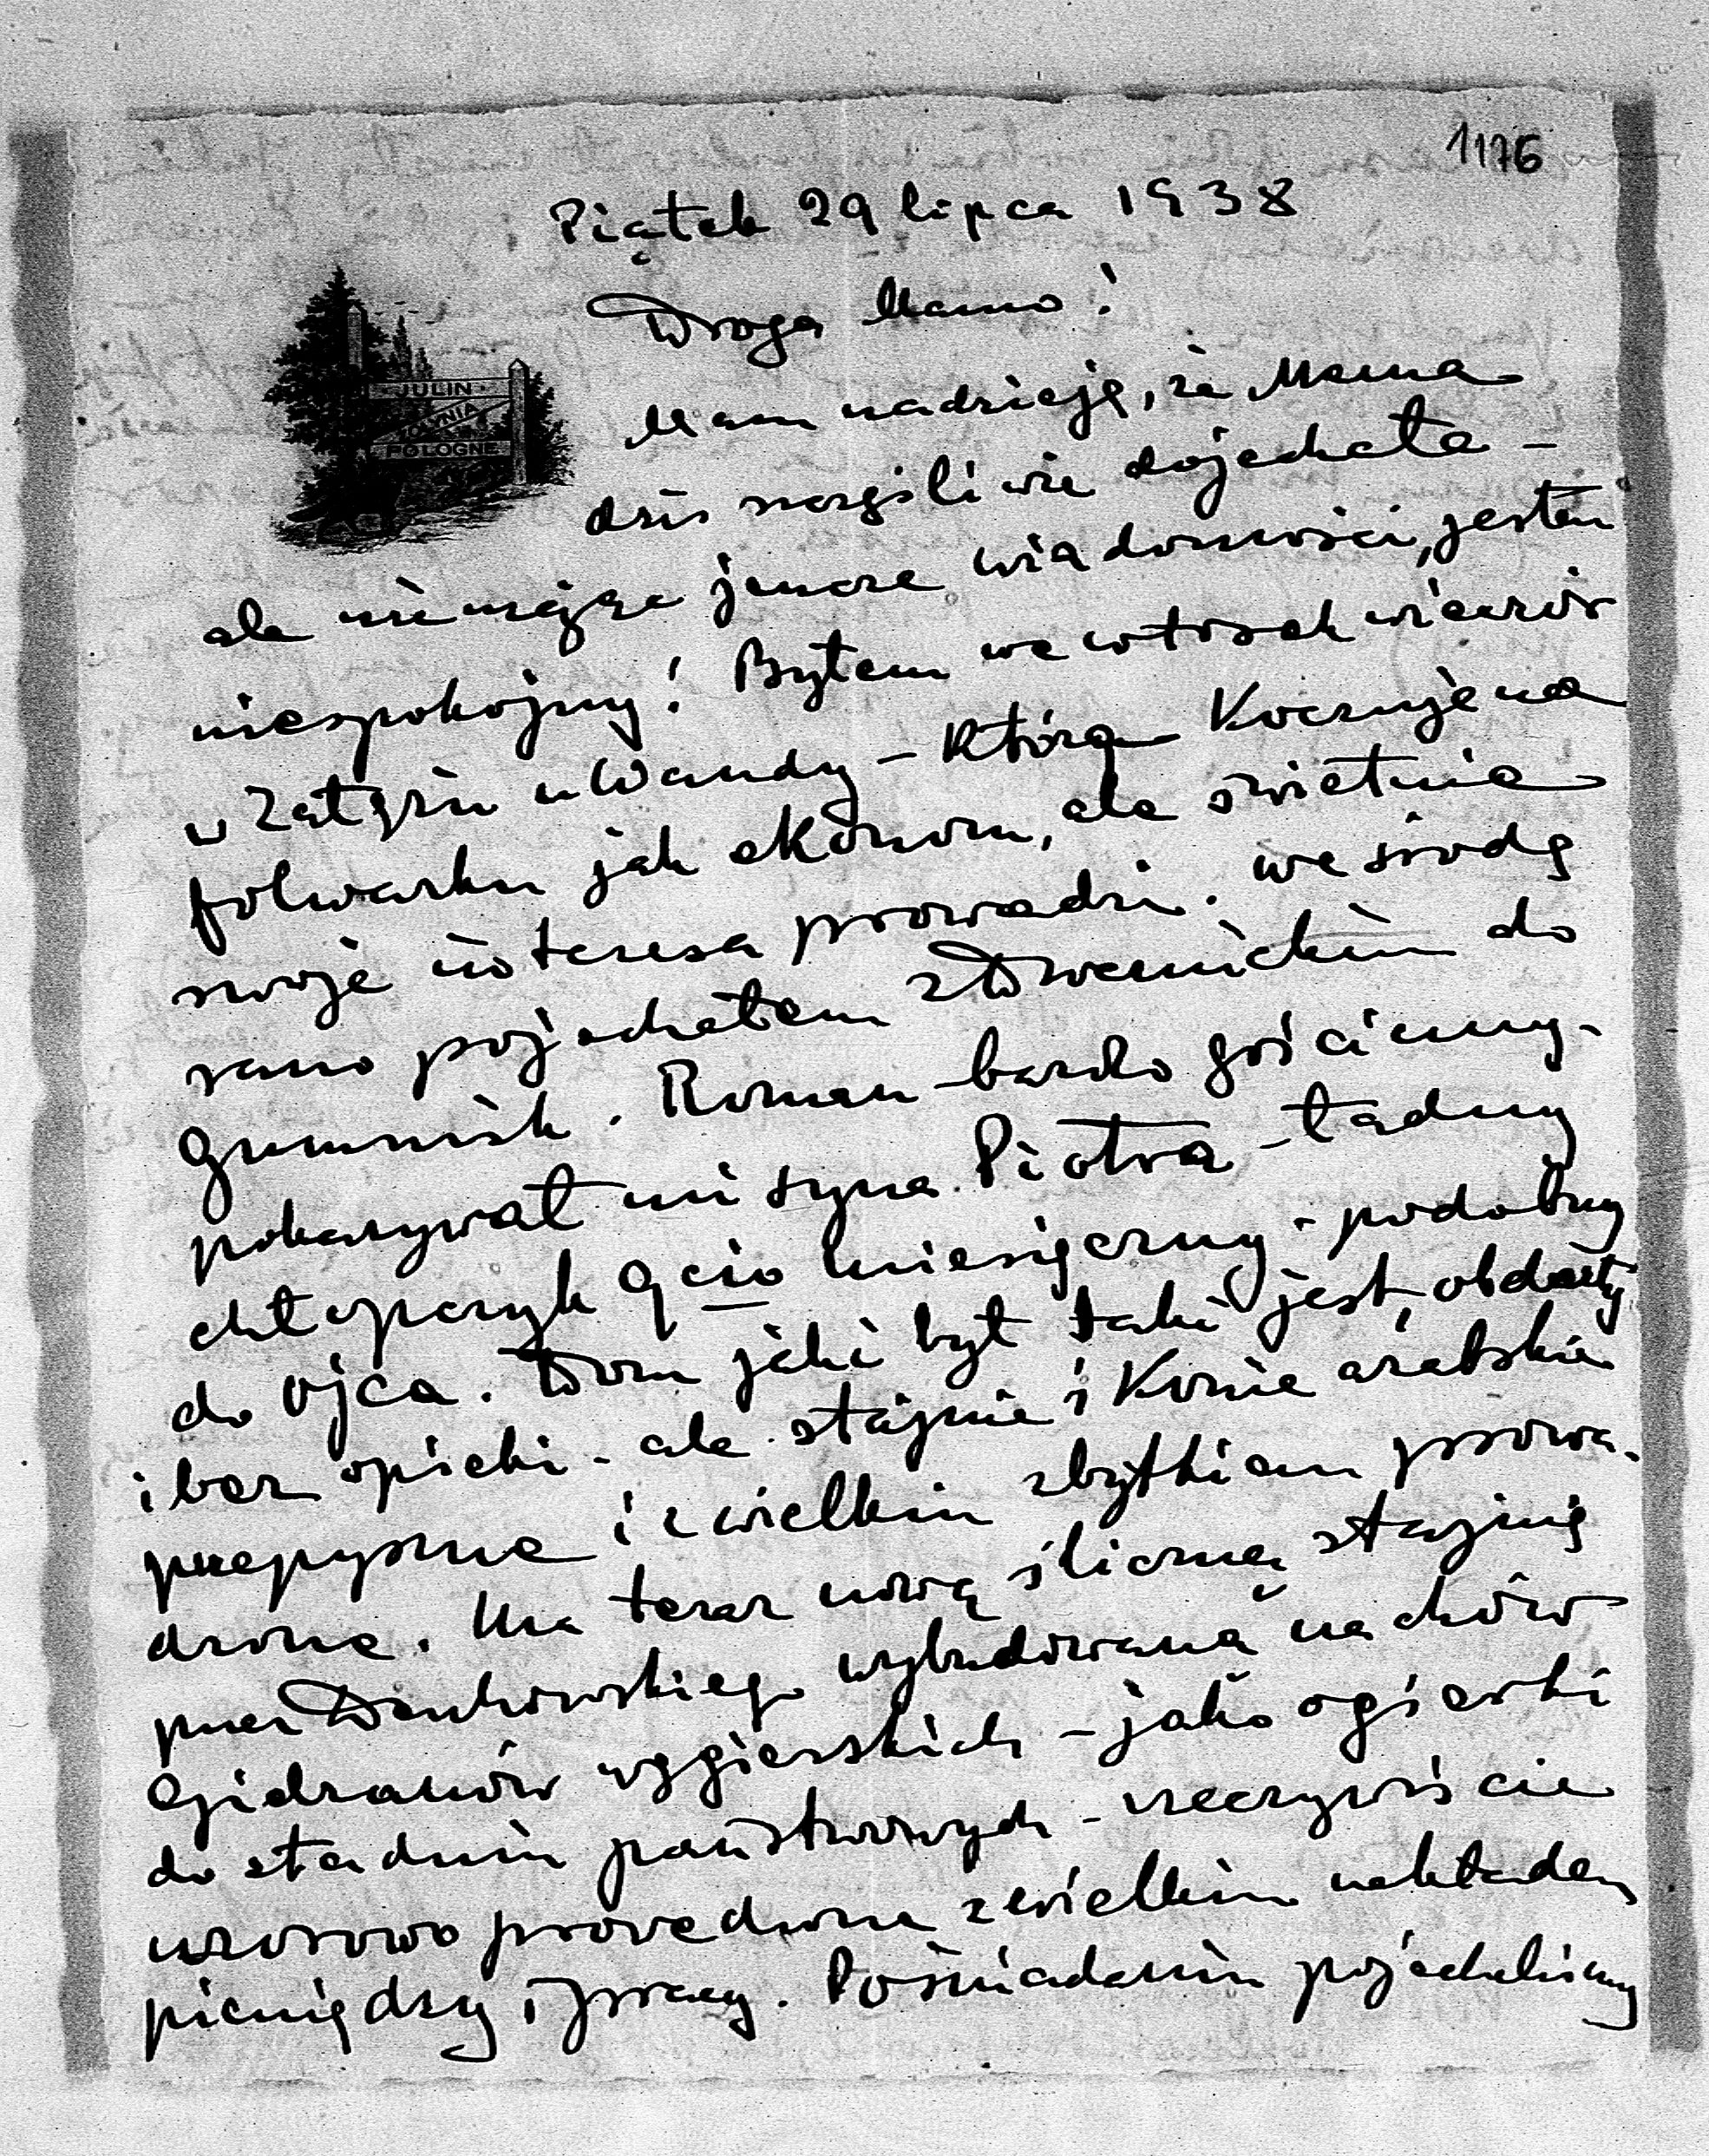 1176
Piątek 29 lipca 1938
Droga Mamo!
JULIN
POLOGNE
Mam nadzieję, że Mama
dziś szczęśliwie dojechała –
ale nie mając jeszcze wiadomości, jestem
niespokojny! Byłem we wtorek wieczór
w Załężu u Wandy – która na
folwarku jak ekonom, ale świetnie
swoje interesa prowadzi. we środę
rano pojechałem z Dwernickim do
Gumnisk. Roman bardzo gościnny.
pokazywał mi syna Piotra – ładny
chłopczyk 9cio miesięczny – podobny
do ojca. Dom jaki był taki jest, obdarty
i bez opieki – ale stajnie i Konie arabskie
przepyszne i z wielkim zbytkiem prowa-
dzone. Ma teraz nową śliczną stajnię
przez wybudowaną na chów
Gidranów węgierskich – jako ogierki
do stadnin państwowych – rzeczywiście
wzorowo prowadzone z wielkim nakładem
pieniędzy i pracy. Po śniadaniu pojechaliśmy